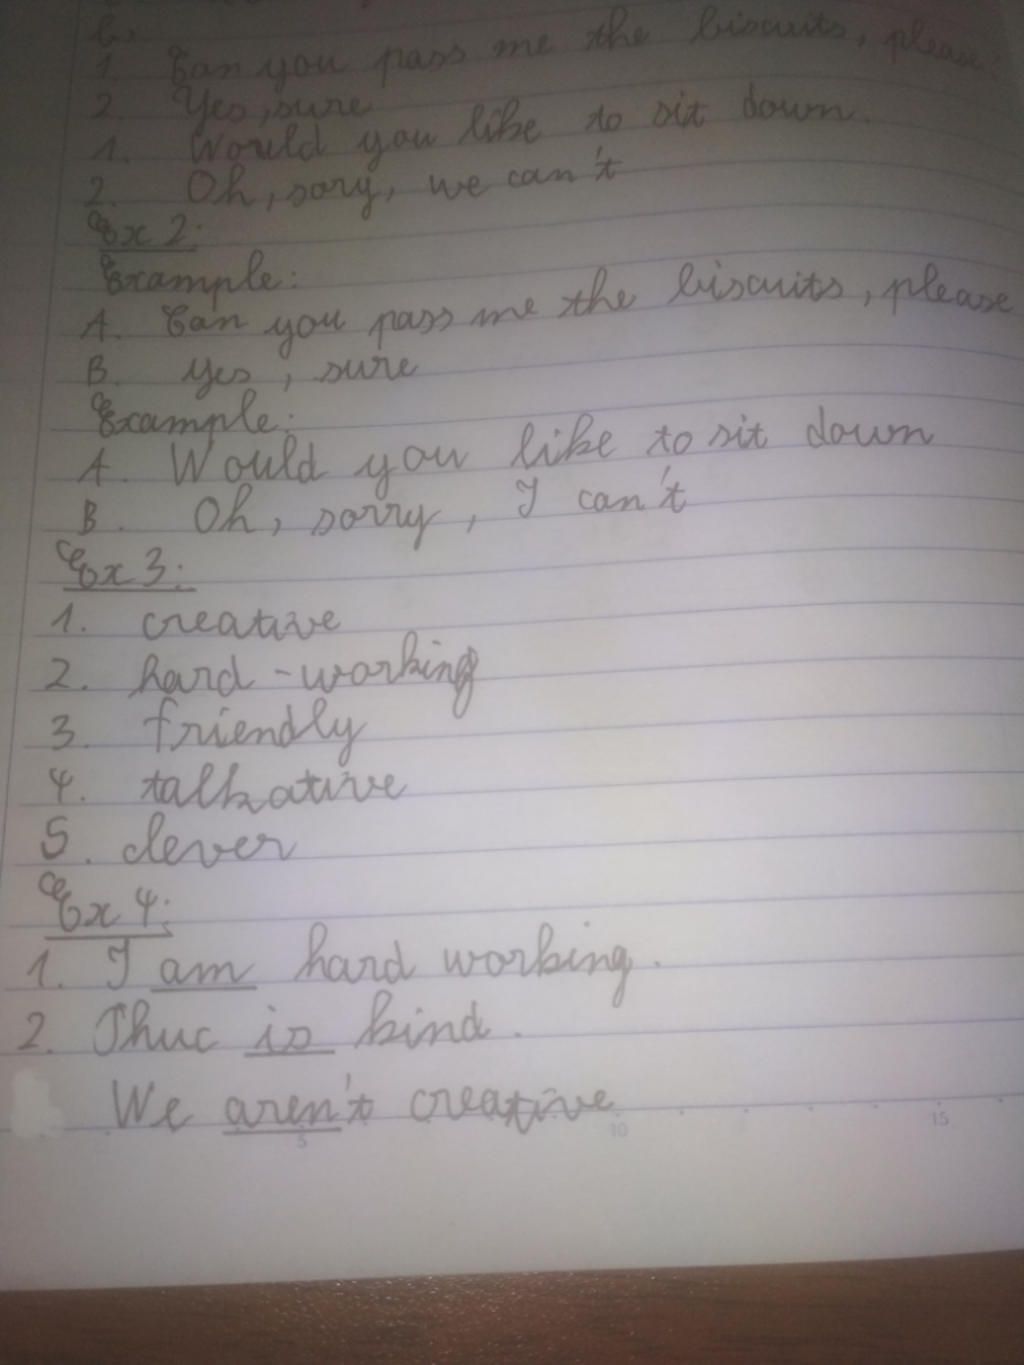 b.
1. Can you pass me the biscuits, please?
2. Yes, sure
1. Would you like to sit down.
2. Oh, sory, we can't
Ex 2:
Example:
A. Can you pass me the biscuits, please
B. Yes, sure
Example:
A. Would you like to sit down
B. Oh, sorry, I can't
Ex 3:
1. creative
2. hard-working
3. friendly
4. talkative
5. clever
Ex 4:
1. I am hard working.
2. Thuc is kind.
We aren't creative
5 10 15